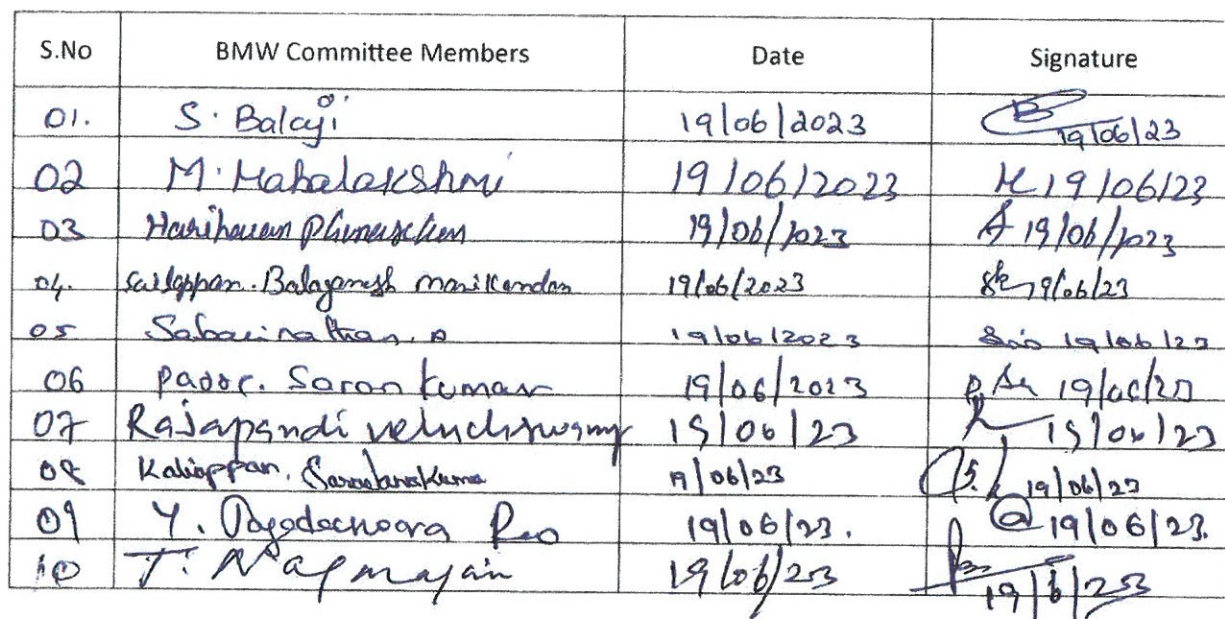 S.No BMW Committee Members Date Signature
01. S. Balaji 19/06/2023 19/06/23
02 M. Mahalakshmi 19/06/2023 M 19/06/23
03 19/06/2023 19/06/2023
04. Balaganesh manikandan 19/06/2023 19/06/23
05 Sabarinathan. A 19/06/2023 19/06/23
06 Saran kumar 19/06/2023 19/06/23
07 Rajapandi veluchswamy 19/06/23 19/06/23
08 Kaliappan. 19/06/23 19/06/23
09 Y. Rao 19/06/23. 19/06/23.
10 T. 19/06/23 19/6/23